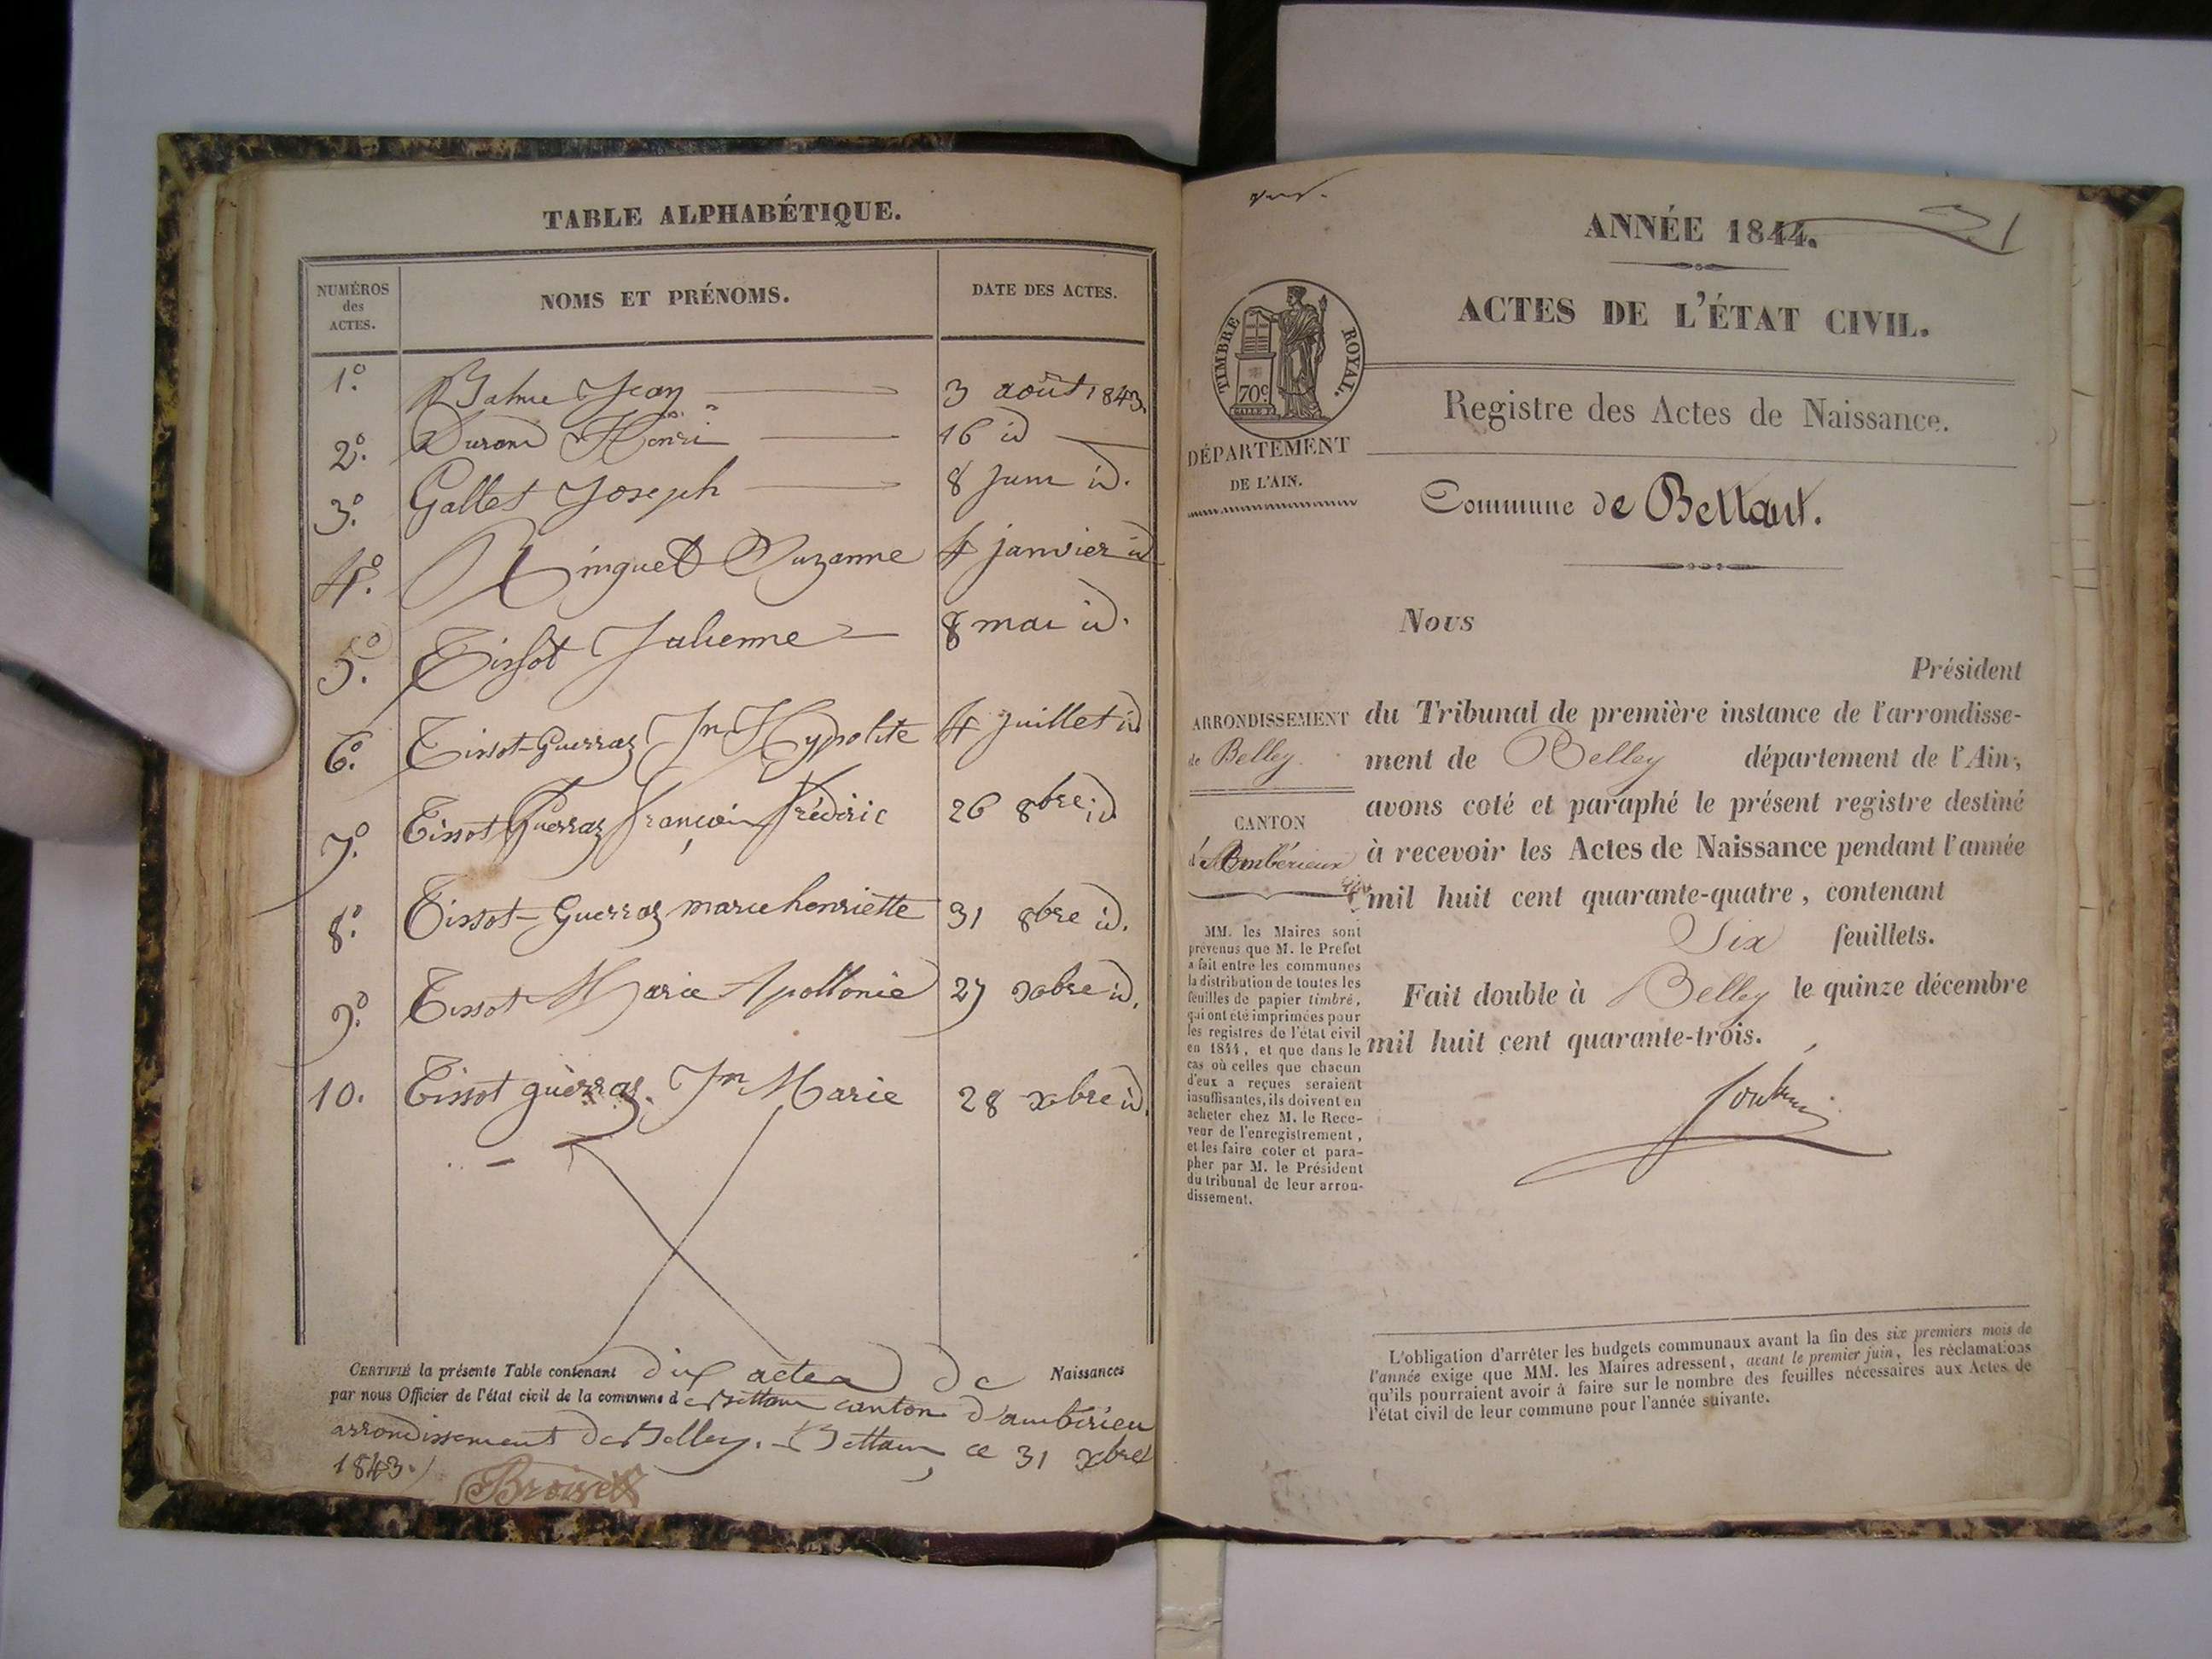 TABLE ALPHABÉTIQUE.
NUMÉROS des ACTES.
NOMS ET PRÉNOMS.
DATE DES ACTES.
1.º Balme Jean 3 août 1843.
2.º Durand Henri 16 id
3.º Gallet Joseph 8 juin id.
4.º Ringuet Suzanne 4 janvier id
5.º Tissot Julienne 8 mai id.
6.º Tissot-Guerraz Jn Hypolite 4 juillet id
7.º Tissot Guerraz François Frédéric 26 8bre id
8.º Tissot-Guerraz marie henriette 31 8bre id.
9.º Tissot Marie Apollonie 27 xbre id.
10. Tissot guerraz. Jn Marie 28 xbre id.
CERTIFIÉ la présente Table contenant dix actes de Naissances
par nous Officier de l'état civil de la commune de Bettan canton d'ambérieu
arrondissement de Belley. Bettan, ce 31 xbre
1843.
Broiset
ANNÉE 1844.
ACTES DE L'ÉTAT CIVIL.
TIMBRE ROYAL.
70c
Registre des Actes de Naissance.
DÉPARTEMENT
DE L'AIN.
Commune de Bettant.
Nous
Président
du Tribunal de première instance de l'arrondisse-
ment de Belley département de l'Ain,
avons coté et paraphé le présent registre destiné
à recevoir les Actes de Naissance pendant l'année
mil huit cent quarante-quatre, contenant
Six feuillets.
Fait double à Belley le quinze décembre
mil huit cent quarante-trois.
ARRONDISSEMENT
de Belley.
CANTON
d'Ambérieux
MM. les Maires sont
prévenus que M. le Préfet
a fait entre les communes
la distribution de toutes les
feuilles de papier timbré,
qui ont été imprimées pour
les registres de l'état civil
en 1844, et que dans le
cas où celles que chacun
d'eux a reçues seraient
insuffisantes, ils doivent en
acheter chez M. le Rece-
veur de l'enregistrement,
et les faire coter et para-
pher par M. le Président
du tribunal de leur arron-
dissement.
L'obligation d'arrêter les budgets communaux avant la fin des six premiers mois de
l'année exige que MM. les Maires adressent, avant le premier juin, les réclamations
qu'ils pourraient avoir à faire sur le nombre des feuilles nécessaires aux Actes de
l'état civil de leur commune pour l'année suivante.